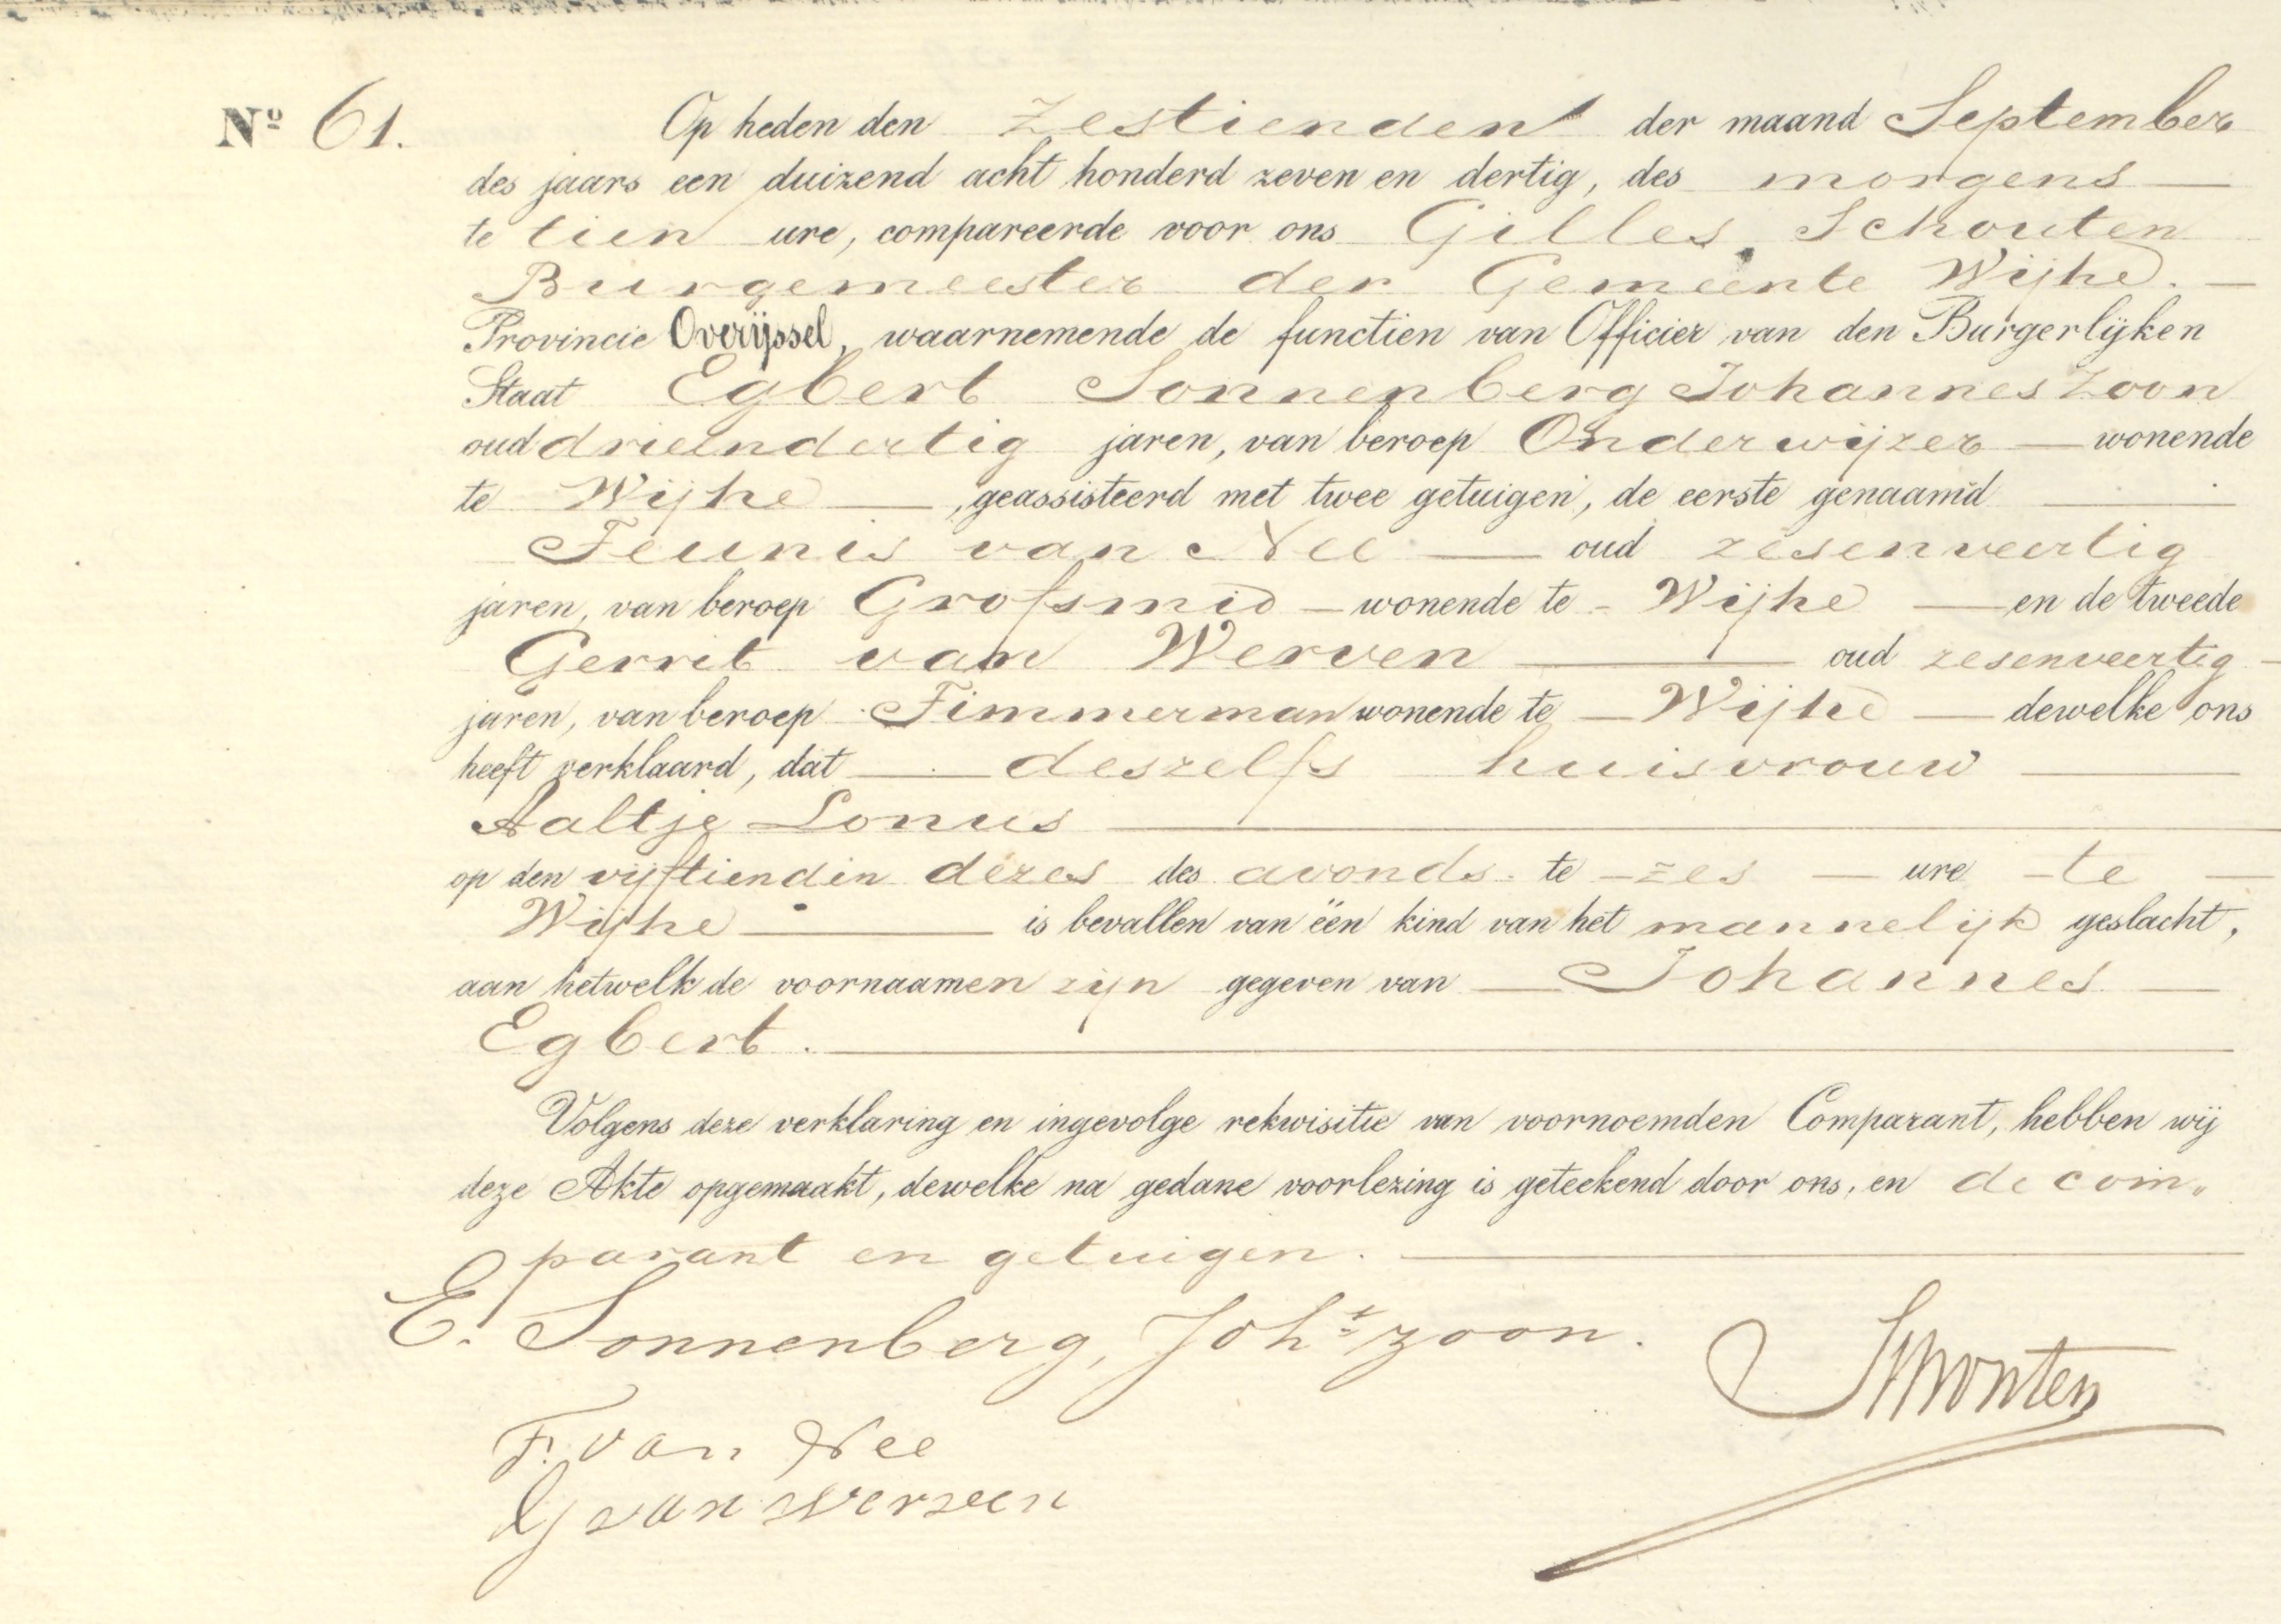 Nº 61.
Op heden den zestienden der maand September
des jaars een duizend acht honderd zeven en dertig, des morgens
te tien ure, compareerde voor ons Gilles Schouten
Burgemeester der Gemeente Wijhe.
Provincie Overijssel, waarnemende de functien van Officier van den Burgerlijken
Staat Egbert Sonnenberg Johanneszoon
oud drieëndertig jaren, van beroep Onderwijzer wonende
te Wijhe, geassisteerd met twee getuigen, de eerste genaamd
Teunis van Nee oud zesenveertig
jaren, van beroep Grofsmid wonende te Wijhe en de tweede
Gerrit van Werven oud zesenveertig
jaren, van beroep Timmerman wonende te Wijhe dewelke ons
heeft verklaard, dat deszelfs huisvrouw
Aaltje Lonus
op den vijftienden dezes des avonds te zes ure te
Wijhe is bevallen van één kind van het mannelijk geslacht,
aan hetwelk de voornaamen zijn gegeven van Johannes
Egbert.
Volgens deze verklaring en ingevolge rekwisitie van voornoemden Comparant, hebben wij
deze Akte opgemaakt, dewelke na gedane voorlezing is geteekend door ons, en de com„
parant en getuigen.
E. Sonnenberg, Johszoon.
Schouten
T. van Nee
G van Werven